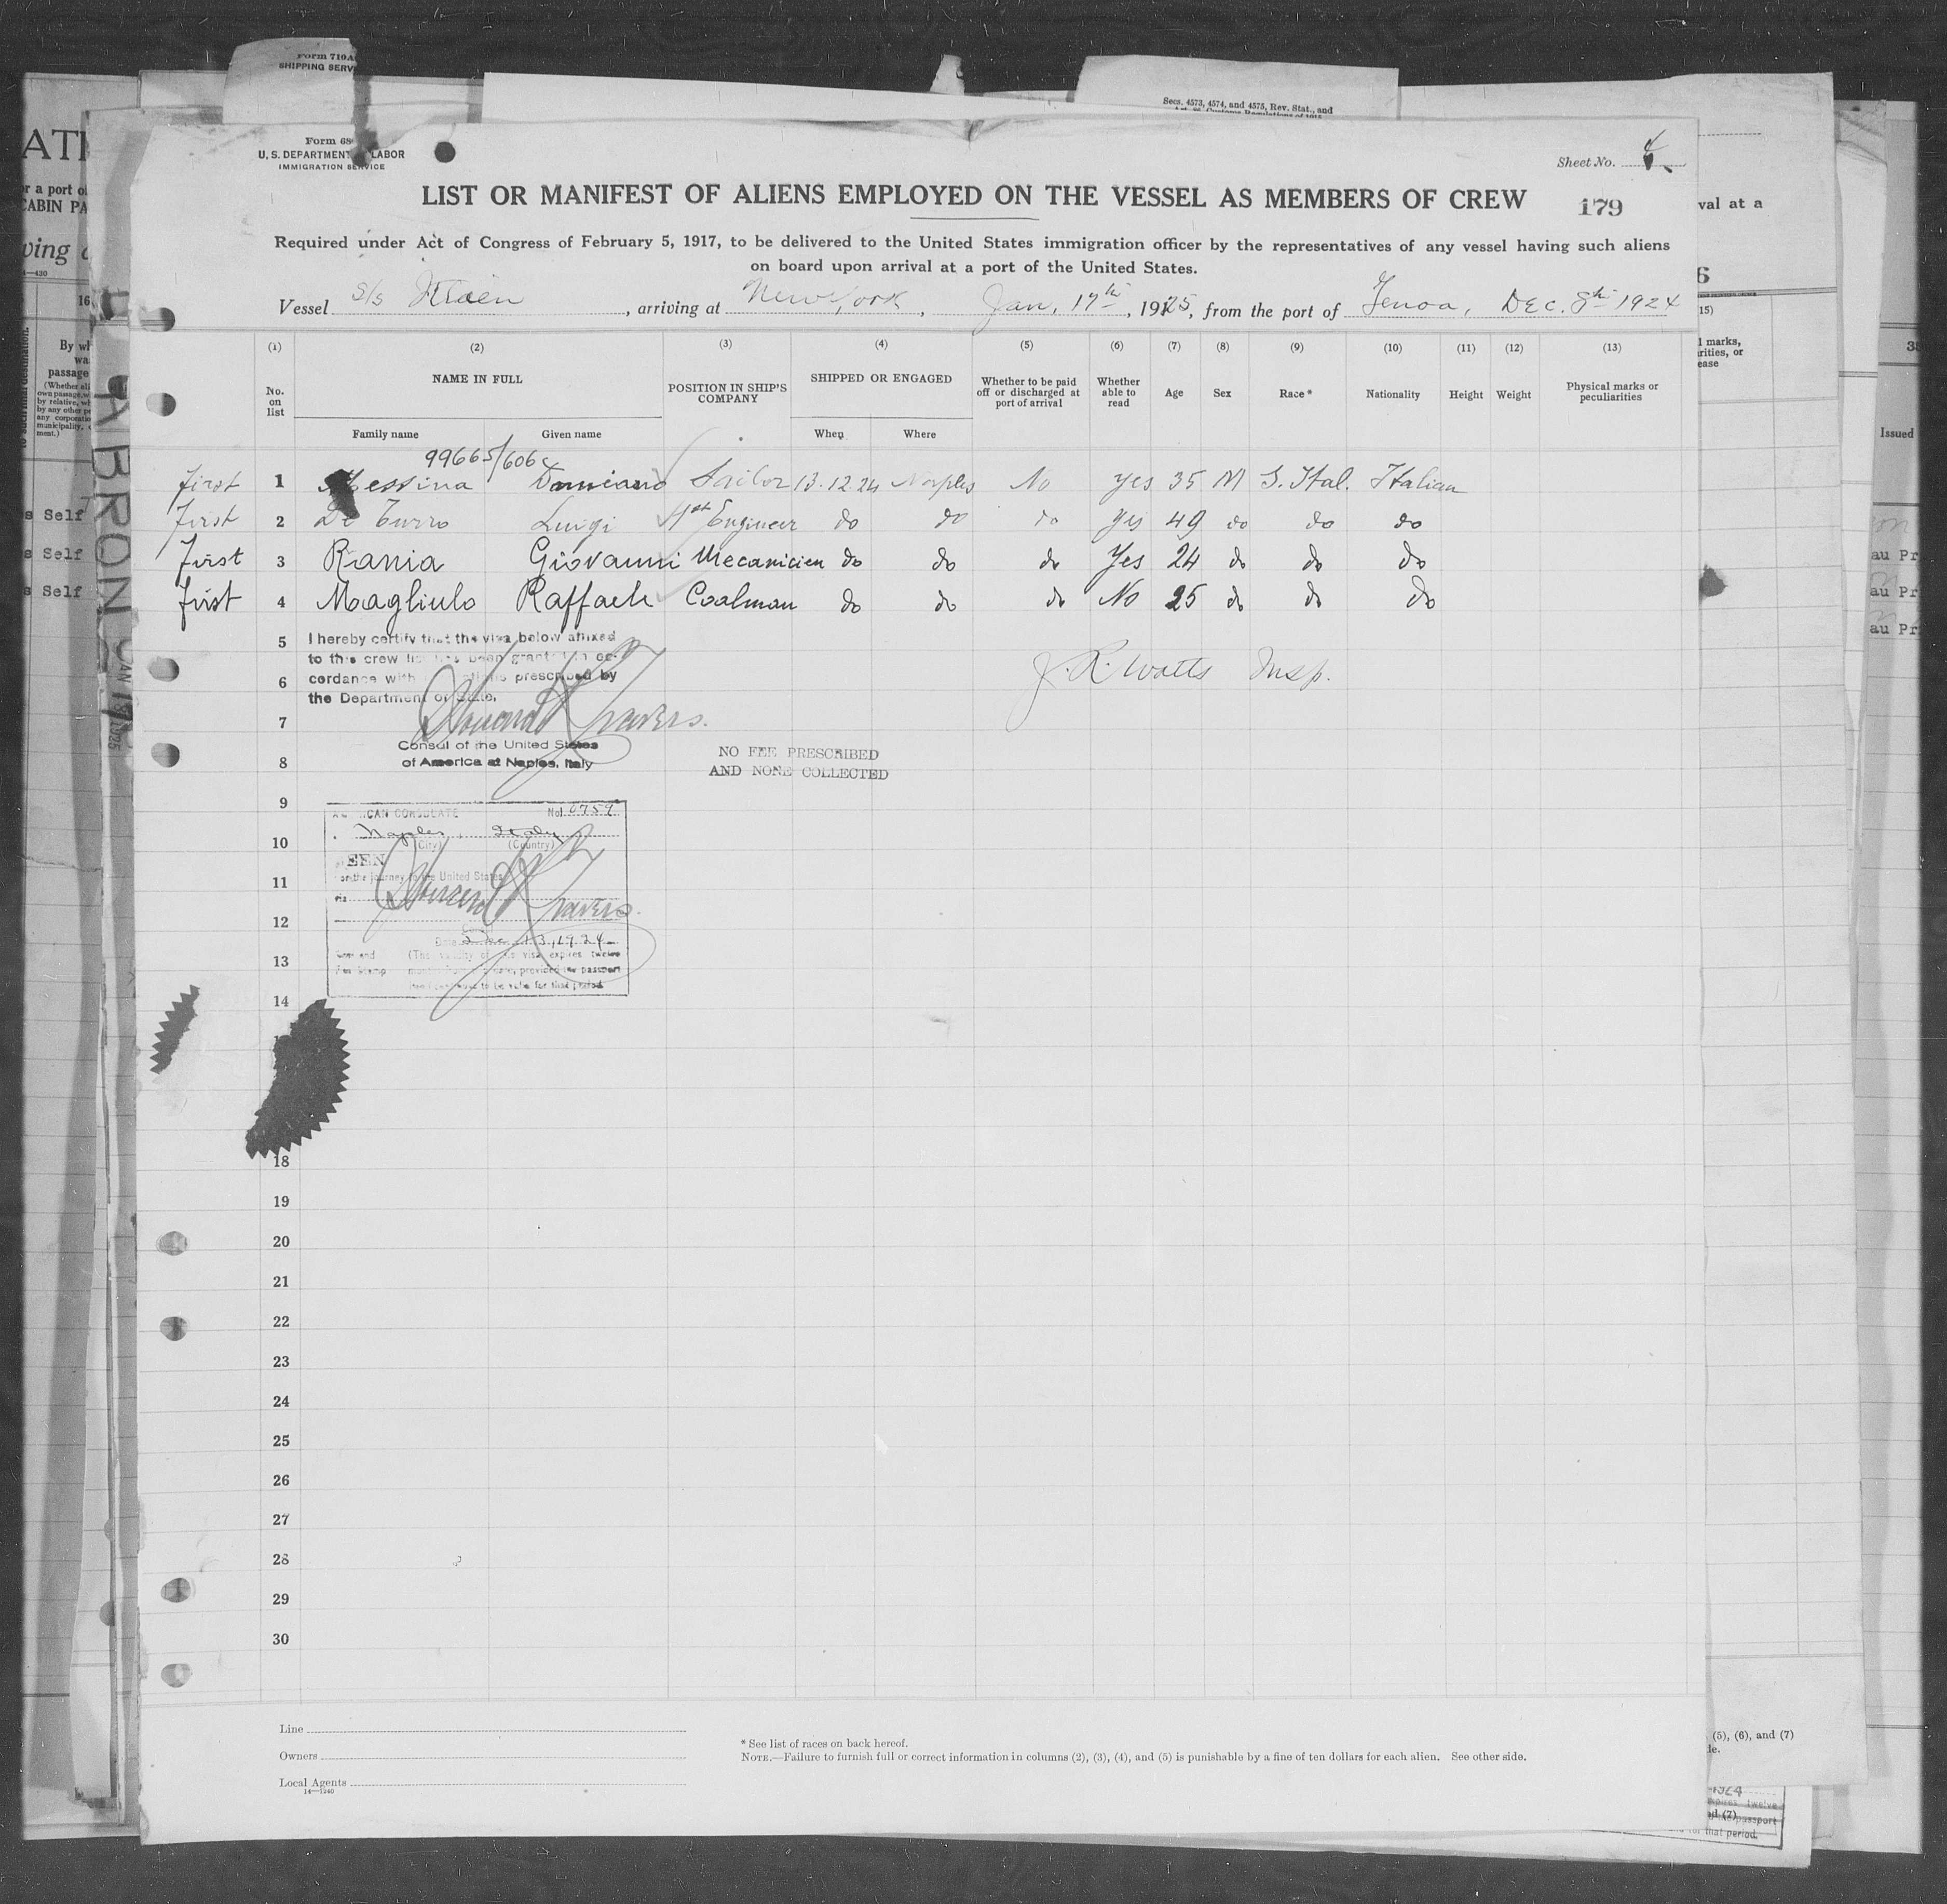 Form 710A
SHIPPING SERV
Secs. 4573, 4574, and 4575, Rev. Stat., and
Form 68
U. S. DEPARTMENT LABOR
IMMIGRATION SERVICE
Sheet No. 4
LIST OR MANIFEST OF ALIENS EMPLOYED ON THE VESSEL AS MEMBERS OF CREW
179
Required under Act of Congress of February 5, 1917, to be delivered to the United States immigration officer by the representatives of any vessel having such aliens
on board upon arrival at a port of the United States.
Vessel S/s, arriving at New York, Jan. 17th, 1925, from the port of Genoa, Dec. 8th 1924
(1) (2) (3) (4) (5) (6) (7) (8) (9) (10) (11) (12) (13)
No. on list NAME IN FULL POSITION IN SHIP'S COMPANY SHIPPED OR ENGAGED Whether to be paid off or discharged at port of arrival Whether able to read Age Sex Race* Nationality Height Weight Physical marks or peculiarities
Family name Given name When Where
99665/606
First 1 Messina Damiano Sailor 13.12.24 Naples No Yes 35 M S. Ital. Italian
First 2 De Turro Luigi 1st Engineer do do do Yes 49 do do do
First 3 Rania Giovanni Mecanicien do do do Yes 24 do do do
First 4 Magliulo Raffaele Coalman do do do No 25 do do do
5 I hereby certify that the visa below affixed
to this crew list has been granted in ac-
6 cordance with prescribed by
the Department of State.
J. R. Watts Insp.
7
Consul of the United States
8 of America at Naples, Italy
NO FEE PRESCRIBED
AND NONE COLLECTED
9 AMERICAN CONSULATE No.
10 Naples, Italy
(City) (Country)
SEEN
11 for the journey to the United States
12
Date Dec. 13, 1924
13 (The validity of this visa expires twelve
months from date, provided the passport
continues to be valid for that period
14
18
19
20
21
22
23
24
25
26
27
28
29
30
Line
Owners
Local Agents
14—1240
* See list of races on back hereof.
NOTE.—Failure to furnish full or correct information in columns (2), (3), (4), and (5) is punishable by a fine of ten dollars for each alien. See other side.
(5), (6), and (7)